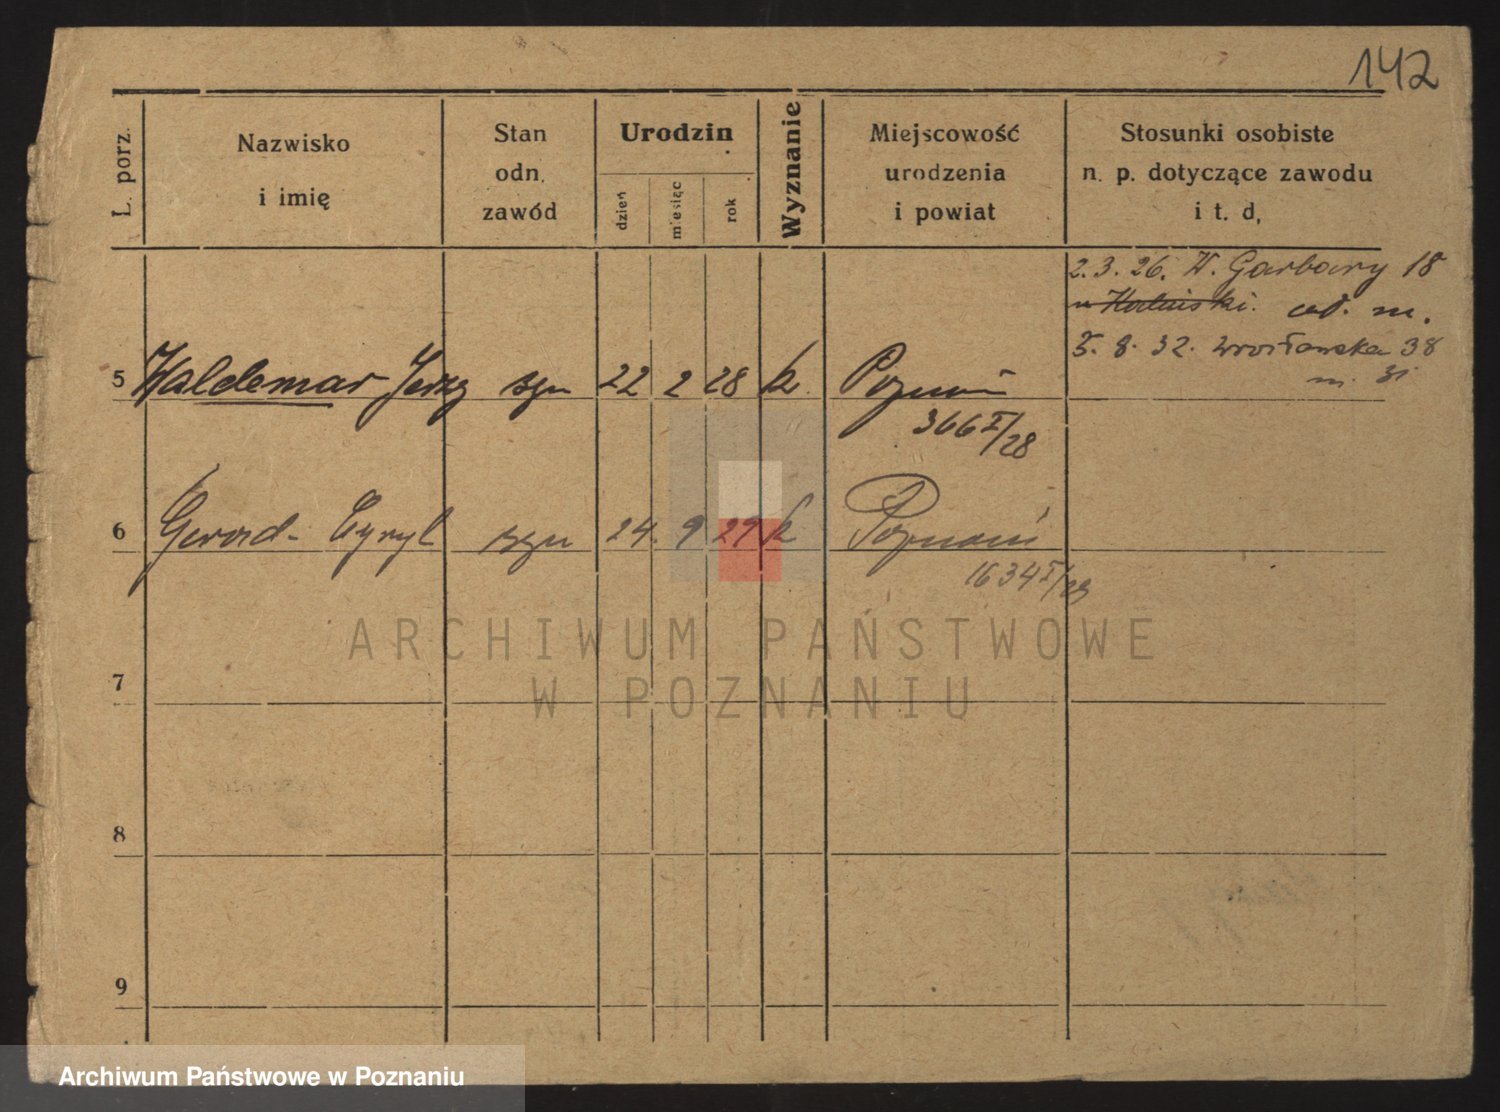 142
L. porz.
Nazwisko
i imię
Stan
odn.
zawód
Urodzin
dzień
miesiąc
rok
Wyznanie
Miejscowość
urodzenia
i powiat
Stosunki osobiste
n. p. dotyczące zawodu
i t. d,
2. 3. 26. W. Garbary 18
u od. m.
5. 8. 32. Wrocławska 38
m. 31
5 Waldemar Jerzy syn 22 2 28 k. Poznań
366 I/28
6 Gerard Cyryl syn 24. 9 29 k Poznań
1634 I/29
7
8
9
ARCHIWUM PAŃSTWOWE
W POZNANIU
Archiwum Państwowe w Poznaniu